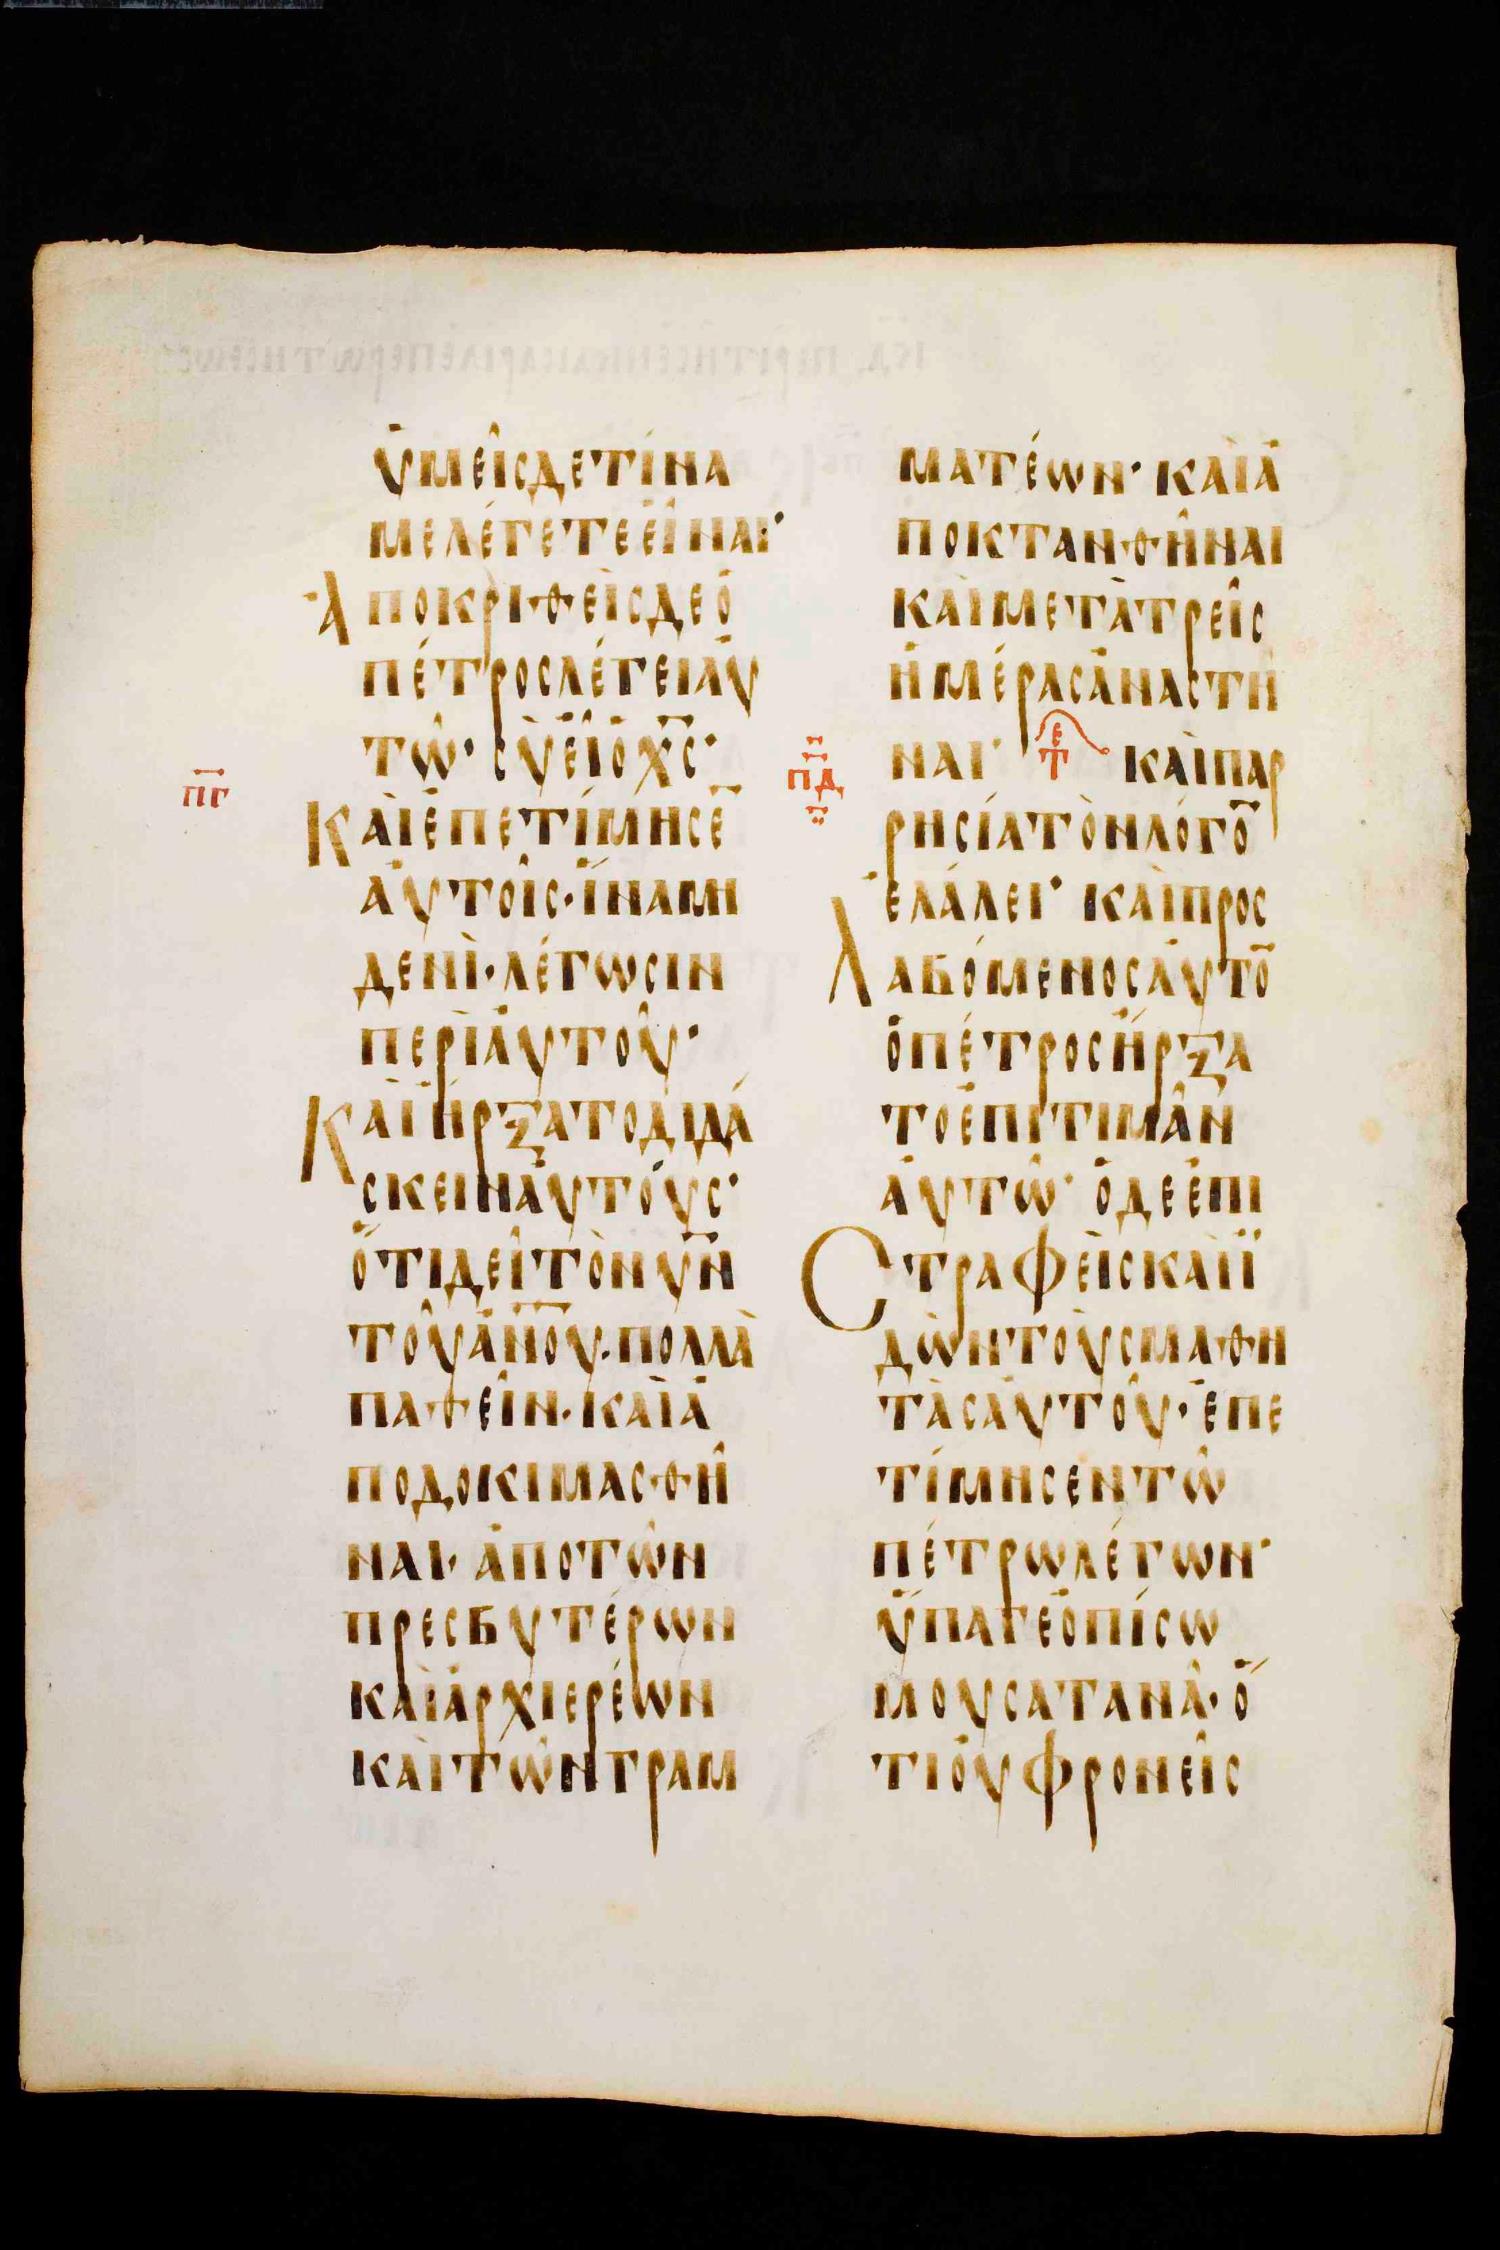 ὙΜΕῖCΔΕΤΊΝΑ
ΜΕΛΈΓΕΤΕΕἶΝΑΙ·
ἈΠΟΚΡΙΘΕῚCΔΕὉ
ΠΈΤΡΟCΛΈΓΕΙἈΥ
Τῶ· CῪΕἾὉΧ̅C̅·
Π̅Γ̅
ΚΑῚἘΠΕΤΊΜΗCΕ̅
ἈΥΤΟῖC·ἽΝΑΜΗ
ΔΕΝῚ·ΛΈΓΩCΙΝ
ΠΕΡῚἈΥΤΟῦ·
ΚΑῚἬΡΞΑΤΟΔΙΔΆ
CΚΕΙΝἈΥΤΟΎC·
ὍΤΙΔΕῖΤῸΝΥ̅Ν̅
ΤΟῦἈ̅Ν̅Ο̅Υ̅·ΠΟΛΛᾺ
ΠΑΘΕῖΝ·ΚΑῚἈ
ΠΟΔΟΚΙΜΑCΘῆ
ΝΑΙ· ἈΠΟΤῶΝ
ΠΡΕCΒΥΤΈΡΩΝ
ΚΑῚἈΡΧΙΕΡΈΩΝ
ΚΑῚΤῶΝΓΡΑΜ
ΜΑΤΈΩΝ· ΚΑῚἈ
ΠΟΚΤΑΝΘῆΝΑΙ
ΚΑῚΜΕΤᾺΤΡΕῖC
ἩΜΈΡΑCἈΝΑCΤῆ
ΝΑΙ· ΤΕ ΚΑῚΠΑΡ
Π̅Δ̅
ΡΗCΊΑΤῸΝΛΌΓΟ̅
ἘΛΆΛΕΙ· ΚΑῚΠΡΟC
ΛΑΒΌΜΕΝΟCἈΥΤΟ̅
ὉΠΈΤΡΟCἬΡΞΑ
ΤΟἘΠΙΤΙΜᾶΝ
ἈΥΤῶ· ὉΔΕἘΠΙ
CΤΡΑΦΕῚCΚΑῚΪ
ΔῺΝΤΟῪCΜΑΘΗ
ΤᾺCἈΥΤΟῦ· ἘΠΕ
ΤΊΜΗCΕΝΤῶ
ΠΈΤΡΩΛΈΓΩΝ·
ὝΠΑΓΕὈΠΊCΩ
ΜΟΥCΑΤΑΝᾶ· Ὅ
ΤΙΟὐΦΡΟΝΕῖC